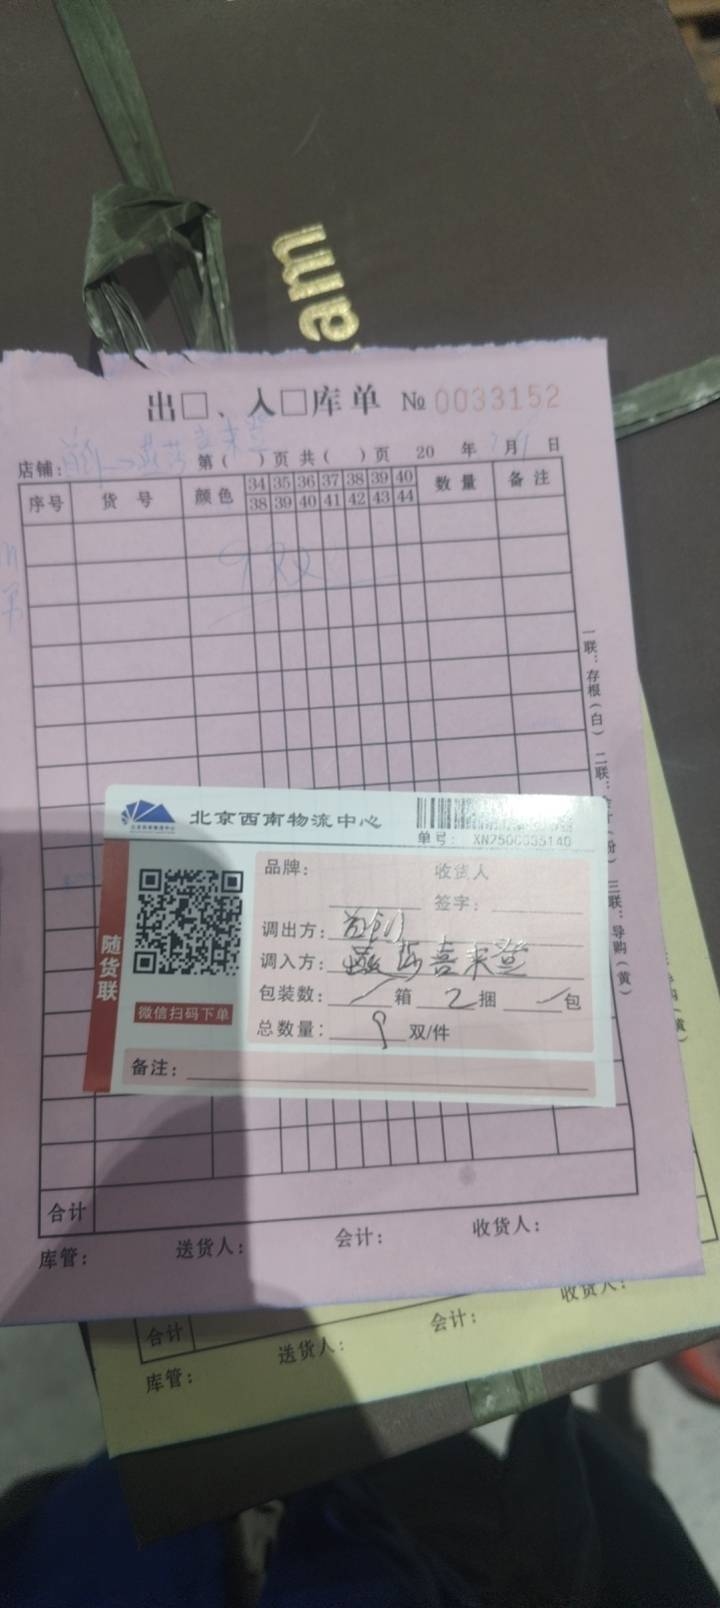 am
出□、入□库单 № 0033152
店铺: 第( )页 共( )页 20 年 月 日
序号 货号 颜色 34 35 36 37 38 39 40 数量 备注
38 39 40 41 42 43 44
9双
一联:存根(白) 二联: 三联:导购(黄)
北京西南物流中心
单号:
随货联
微信扫码下单
品牌: 收货人
签字:
调出方:
调入方: 燕莎喜来登
包装数: 箱 2 捆 包
总数量: 9 双/件
备注:
合计
库管: 送货人: 会计: 收货人:
合计
库管: 送货人: 会计: 收货人: